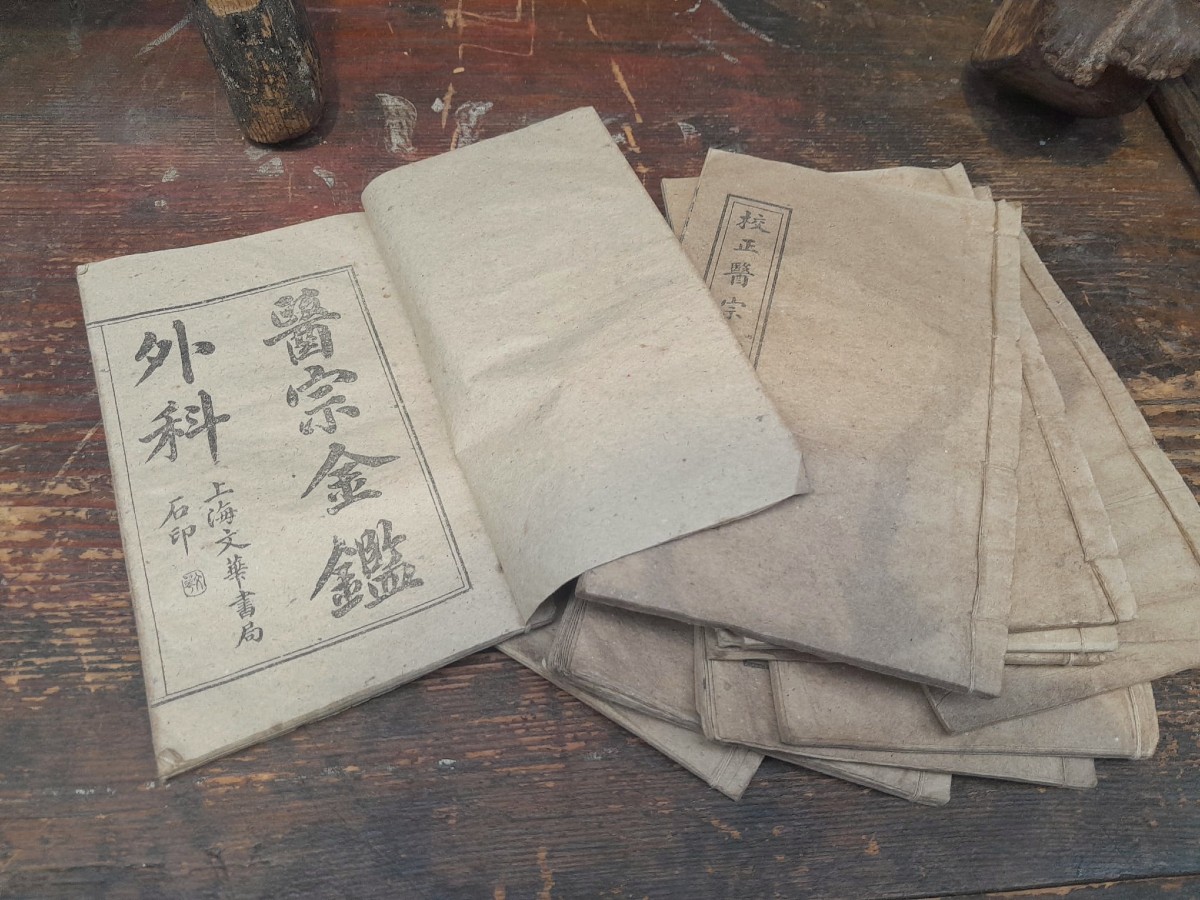 醫宗金鑑
外科
上海文華書局
石印
校正醫宗